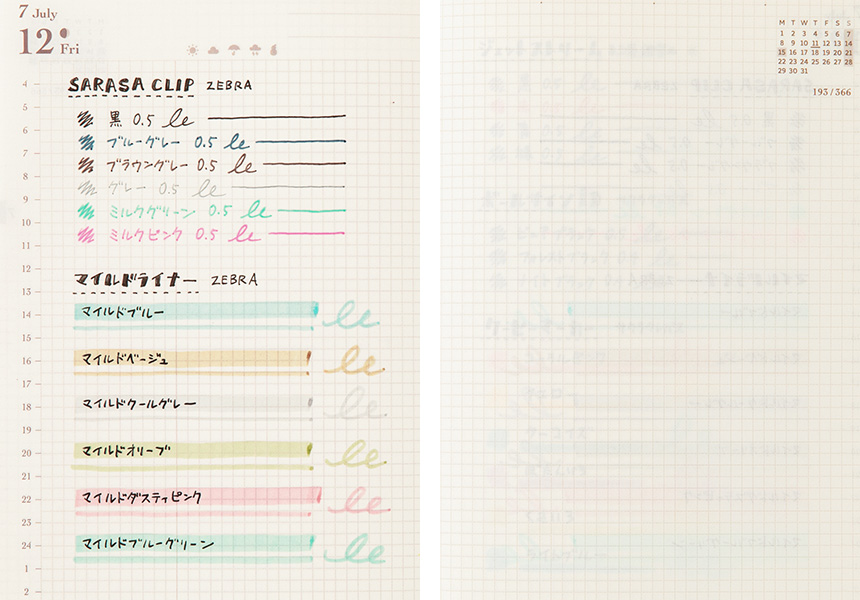 7 July
12 Fri
SARASA CLIP ZEBRA
黒 0.5 le
ブルーグレー 0.5 le
ブラウングレー 0.5 le
グレー 0.5 le
ミルクグリーン 0.5 le
ミルクピンク 0.5 le
マイルドライナー ZEBRA
マイルドブルー le
マイルドベージュ le
マイルドクールグレー le
マイルドオリーブ le
マイルドダスティピンク le
マイルドブルーグリーン le
4
5
6
7
8
9
10
11
12
13
14
15
16
17
18
19
20
21
22
23
24
1
2
M T W T F S S
1 2 3 4 5 6 7
8 9 10 11 12 13 14
15 16 17 18 19 20 21
22 23 24 25 26 27 28
29 30 31
193/366